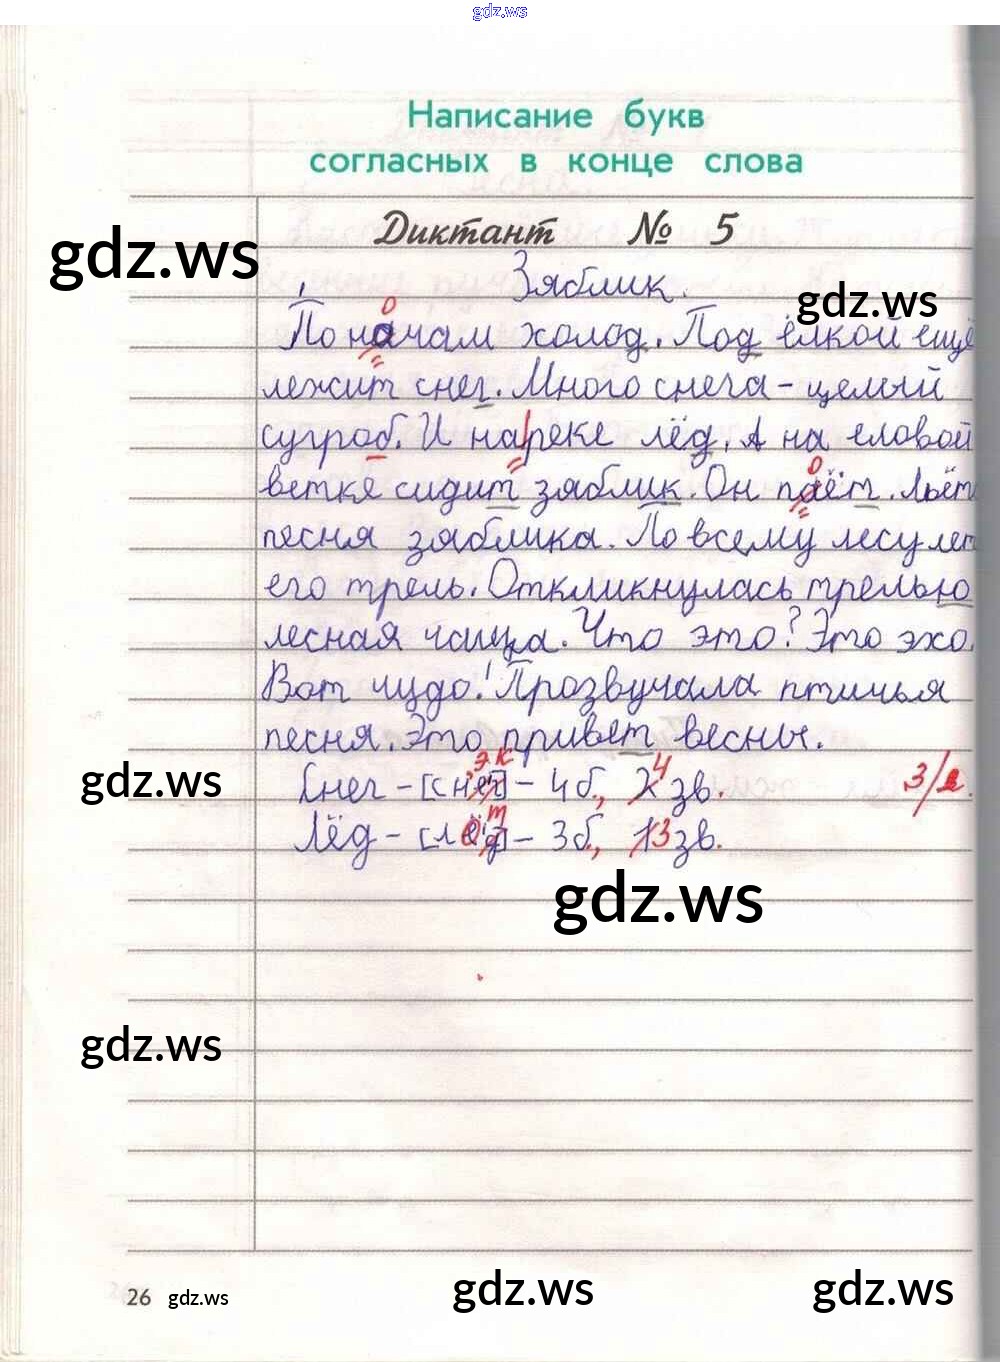 gdz.ws
Написание букв
согласных в конце слова
Диктант № 5
gdz.ws
Зяблик.
gdz.ws
о
По начам холод. Под ёлкой ещё
лежит снег. Много снега - целый
сугроб. И на|реке лёд. А на еловой
о
ветке сидит зяблик. Он паёт. Льёт
песня зяблика. По всему лесу лет
его трель. Откликнулась трелью
лесная чаща. Что это? Это эхо.
Вот чудо! Прозвучала птичья
песня. Это привет весны.
э к 4
gdz.ws Снег - [снег] - 4 б., зв. 3/
о т
Лёд - [лёд] - 3 б., 3 зв.
gdz.ws
gdz.ws
26 gdz.ws gdz.ws gdz.ws